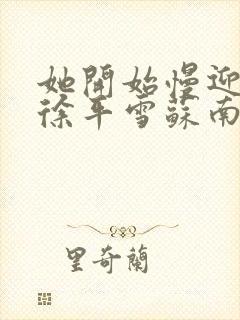 她開始慢迎
徐平雪蘇南
里奇蘭